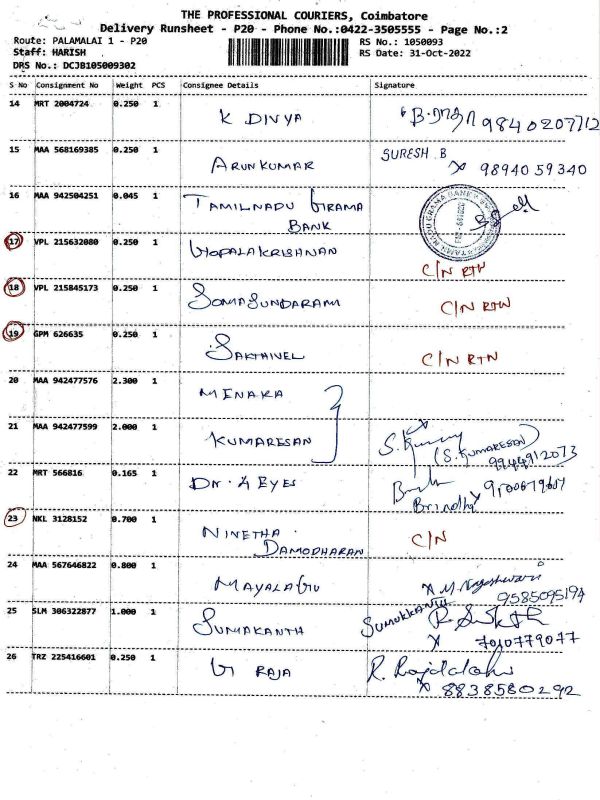 THE PROFESSIONAL COURIERS, Coimbatore
Delivery Runsheet - P20 - Phone No.:0422-3505555 - Page No.:2
Route: PALAMALAI 1 - P20
RS No.: 1050093
Staff: HARISH
RS Date: 31-Oct-2022
DRS No.: DCJB105009302
S No Consignment No Weight PCS Consignee Details Signature
14 MRT 2004724 0.250 1 K DIVYA 9840207712
15 MAA 568169385 0.250 1 ARUNKUMAR SURESH B
X 98940 59340
16 MAA 942504251 0.045 1 TAMILNADU GRAMA
BANK
17 VPL 215632080 0.250 1 GOPALAKRISHNAN C/N RTN
18 VPL 215845173 0.250 1 SOMASUNDARAM C/N RTN
19 GPM 626635 0.250 1 SAKTHIVEL C/N RTN
20 MAA 942477576 2.300 1 MENAKA
21 MAA 942477599 2.000 1 KUMARESAN (S.KUMARESAN)
9944912073
22 MRT 566816 0.165 1 DR. A EYES
Brindha
23 NKL 3128152 0.700 1 NINETHA
DAMODHARAN C/N
24 MAA 567646822 0.800 1 MAYALAGU X M. Nageshwari
9585095194
25 SLM 306322877 1.000 1 SUMAKANTH
X 7010779077
26 TRZ 225416601 0.250 1 G RAJA
X 8838580292